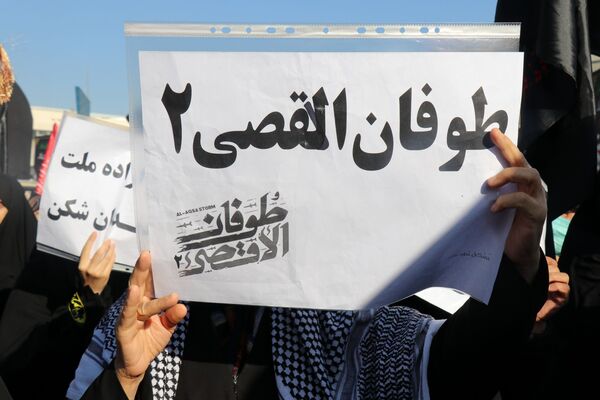 طوفان القصی ۲
AL-AQSA STORM
طوفان
الأقصی ۲
ملت
شکن